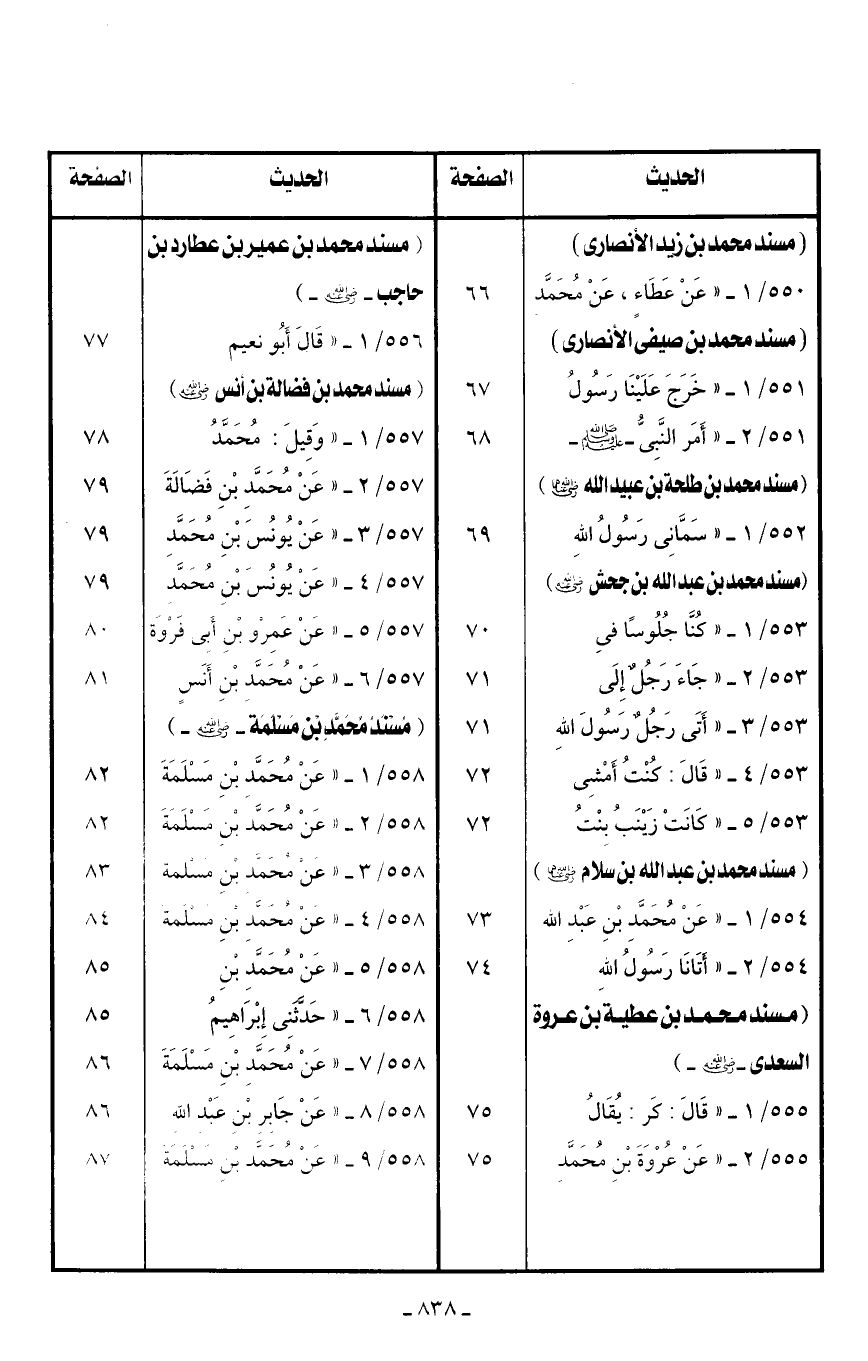 الحديث الصفحة
( مسند محمد بن زيد الأنصارى )
٥٥٠/ ١ ـ « عَنْ عَطَاءٍ ، عَنْ مُحَمَّد ٦٦
( مسند محمد بن صيفى الأنصارى )
٥٥١/ ١ ـ « خَرَجَ عَلَيْنَا رَسُولُ ٦٧
٥٥١/ ٢ ـ « أَمَر النَّبىُّ ـ ﷺ ـ ٦٨
( مسند محمد بن طلحة بن عبيد الله رضي الله عنه )
٥٥٢/ ١ ـ « سَمَّانِى رَسُولُ اللهِ ٦٩
(مسند محمد بن عبد الله بن جحش رضي الله عنه )
٥٥٣/ ١ ـ « كُنَّا جُلُوسًا فِى ٧٠
٥٥٣/ ٢ ـ « جَاءَ رَجُلٌ إِلَى ٧١
٥٥٣/ ٣ ـ « أَتَى رَجُلٌ رَسُولَ اللهِ ٧١
٥٥٣/ ٤ ـ « قَالَ : كُنْتُ أَمْشِى ٧٢
٥٥٣/ ٥ ـ « كَانَتْ زَيْنَبُ بِنْتُ ٧٢
( مسند محمد بن عبد الله بن سلام رضي الله عنهما )
٥٥٤/ ١ ـ « عَنْ مُحَمَّدِ بْنِ عَبْدِ الله ٧٣
٥٥٤/ ٢ ـ « أَتَانَا رَسُولُ اللهِ ٧٤
( مسند محمد بن عطية بن عروة
السعدى ـ رضي الله عنه ـ )
٥٥٥/ ١ ـ « قَالَ : كَر : يُقَالُ ٧٥
٥٥٥/ ٢ ـ « عَنْ عُرْوَةَ بْنِ مُحَمَّدِ ٧٥
الحديث الصفحة
( مسند محمد بن عمير بن عطارد بن
حاجب ـ رضي الله عنه ـ )
٥٥٦/ ١ ـ « قَالَ أَبُو نعيم ٧٧
( مسند محمد بن فضالة بن أنس رضي الله عنه )
٥٥٧/ ١ ـ « وَقِيلَ : مُحَمَّدُ ٧٨
٥٥٧/ ٢ ـ « عَنْ مُحَمَّدِ بْنِ فَضَالَةَ ٧٩
٥٥٧/ ٣ ـ « عَنْ يُونُسَ بْنِ مُحَمَّدِ ٧٩
٥٥٧/ ٤ ـ « عَنْ يُونُسَ بْنِ مُحَمَّدِ ٧٩
٥٥٧/ ٥ ـ « عَنْ عَمِرْو بْنِ أَبِى فَرْوَةَ ٨٠
٥٥٧/ ٦ ـ « عَنْ مُحَمَّدِ بْنِ أَنَسٍ ٨١
( مُسْنَدُ مُحَمَّدِ بْنِ مَسْلَمَة ـ رضي الله عنه ـ )
٥٥٨/ ١ ـ « عَنْ مُحَمَّدِ بْنِ مَسْلَمَةَ ٨٢
٥٥٨/ ٢ ـ « عَنْ مُحَمَّدِ بْنِ مَسْلَمَةَ ٨٢
٥٥٨/ ٣ ـ « عَنْ مُحَمَّدِ بْنِ مَسْلمة ٨٣
٥٥٨/ ٤ ـ « عَنْ مُحَمَّدِ بْنِ مَسْلَمَةَ ٨٤
٥٥٨/ ٥ ـ « عَنْ مُحَمَّدِ بْنِ ٨٥
٥٥٨/ ٦ ـ « حَدَّثَنِى إِبْرَاهِيمُ ٨٥
٥٥٨/ ٧ ـ « عَنْ مُحَمَّدِ بْنِ مَسْلَمَةَ ٨٦
٥٥٨/ ٨ ـ « عَنْ جَابِرِ بْنِ عَبْدِ اللهِ ٨٦
٥٥٨/ ٩ ـ « عَنْ مُحَمَّدِ بْنِ مَسْلَمَةَ ٨٧
ـ ٨٣٨ ـ